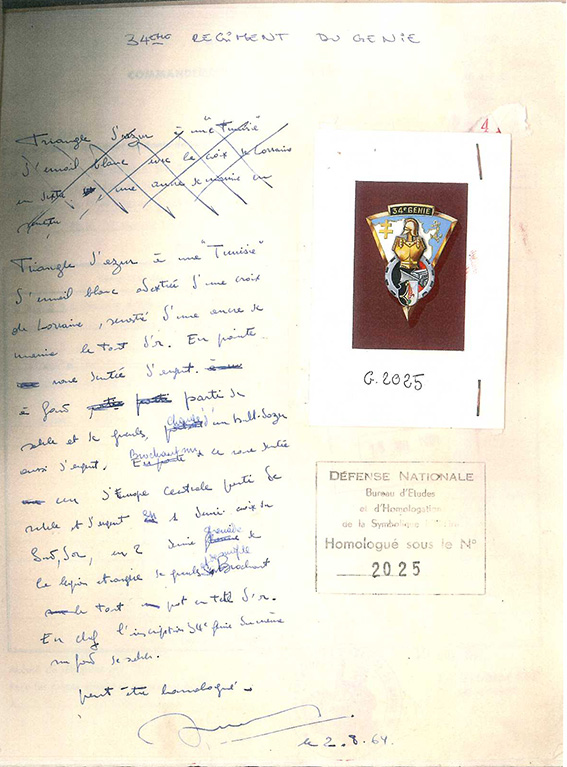 34ème REGIMENT DU GENIE
Triangle d'azur à une "Tunisie"
d'émail blanc avec la croix de Lorraine
en dextre, une ancre de marine en
Triangle d'azur à une "Tunisie"
d'émail blanc adextrée d'une croix
de Lorraine, senestrée d'une ancre de
marine le tout d'or. En pointe
roue dentée d'argent.
à fond parti de
sable et de gueules, chargé d'un bull-dozer
aussi d'argent. Brochant sur ce roue dentée
un d'Europe Centrale parti de
sable et d'argent 1 demi croix du
Sud, d'or, en 2 demie grenade de
la légion étrangère de gueules. Brochant
le tout pot en tête d'or.
En chef l'inscription 34e génie du même
sur fond de sable.
peut être homologué.
le 2.8.64.
4
34e GENIE
G.2025
DÉFENSE NATIONALE
Bureau d'Etudes
et d'Homologation
de la Symbolique
Homologué sous le No
2025